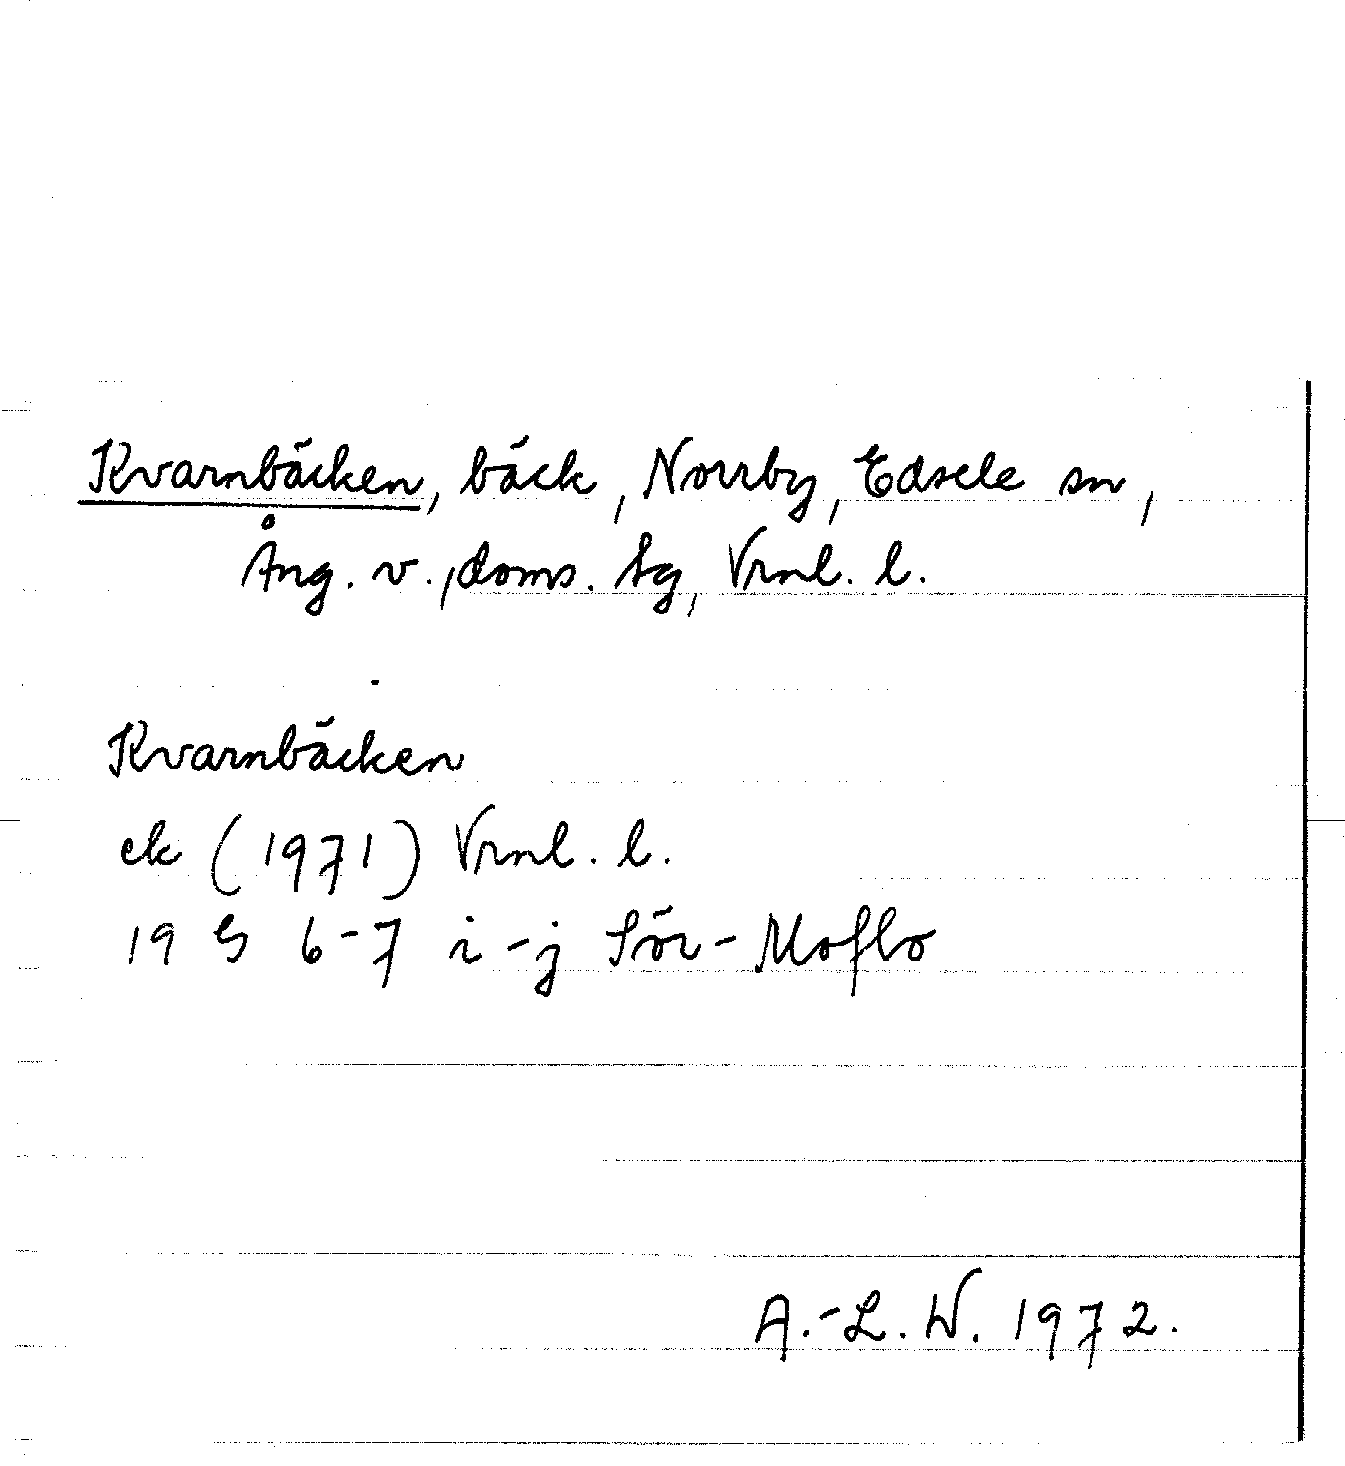 Kvarnbäcken, bäck, Norrby, Edsele sn,
Ång. v., doms. tg, Vrnl. l.
Kvarnbäcken
ek (1971) Vrnl. l.
19 G 6-7 i-j Sör-Moflo
A.-L. W. 1972.